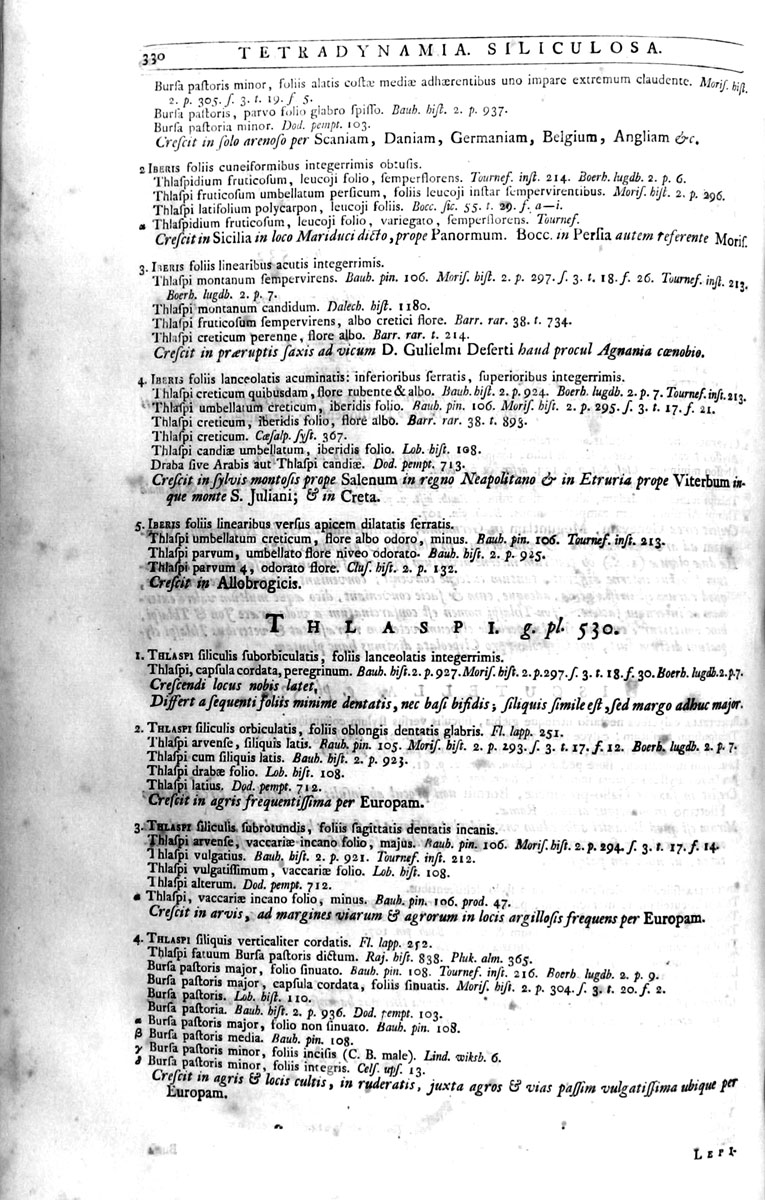 330 TETRADYNAMIA. SILICULOSA.
Burſa paſtoris minor, foliis alatis coſtæ mediæ adhærentibus uno impare extremum claudente. Moriſ. hiſt.
2. p. 305. ſ. 3. t. 19. f 5.
Burſa paſtoris, parvo folio glabro ſpiſſo. Bauh. hiſt. 2. p. 937.
Burſa paſtoria minor. Dod. pempt. 103.
Creſcit in ſolo arenoſo per Scaniam, Daniam, Germaniam, Belgium, Angliam &c.
2 IBERIS foliis cuneiformibus integerrimis obtuſis.
Thlaſpidium fruticoſum, leucoji folio, ſemperflorens. Tournef. inſt. 214. Boerh. lugdb. 2. p. 6.
Thlaſpi fruticoſum umbellatum perſicum, foliis leucoji inſtar ſempervirentibus. Moriſ. hiſt. 2. p. 296.
Thlaſpi latifolium polycarpon, leucoji foliis. Bocc. ſic. 55. t. 29. f. a—i.
α Thlaſpidium fruticoſum, leucoji folio, variegato, ſemperflorens. Tournef.
Creſcit in Sicilia in loco Mariduci dicto, prope Panormum. Bocc. in Perſia autem referente Moriſ.
3. IBERIS foliis linearibus acutis integerrimis.
Thlaſpi montanum ſempervirens. Bauh. pin. 106. Moriſ. hiſt. 2. p. 297. ſ. 3. t. 18. f. 26. Tournef. inſt. 213.
Boerh. lugdb. 2. p. 7.
Thlaſpi montanum candidum. Dalech. hiſt. 1180.
Thlaſpi fruticoſum ſempervirens, albo cretici flore. Barr. rar. 38. t. 734.
Thlaſpi creticum perenne, flore albo. Barr. rar. t. 214.
Creſcit in præruptis ſaxis ad vicum D. Gulielmi Deſerti haud procul Agnania cœnobio.
4. IBERIS foliis lanceolatis acuminatis: inferioribus ſerratis, ſuperioribus integerrimis.
Thlaſpi creticum quibusdam, flore rubente & albo. Bauh. hiſt. 2. p. 924. Boerh. lugdb. 2. p. 7. Tournef. inſt. 213.
Thlaſpi umbellatum creticum, iberidis folio. Bauh. pin. 106. Moriſ. hiſt. 2. p. 295. ſ. 3. t. 17. f. 21.
Thlaſpi creticum, iberidis folio, flore albo. Barr. rar. 38. t. 893.
Thlaſpi creticum. Cæſalp. ſyſt. 367.
Thlaſpi candiæ umbellatum, iberidis folio. Lob. hiſt. 108.
Draba ſive Arabis aut Thlaſpi candiæ. Dod. pempt. 713.
Creſcit in ſylvis montoſis prope Salenum in regno Neapolitano & in Etruria prope Viterbum in-
que monte S. Juliani; & in Creta.
5. IBERIS foliis linearibus verſus apicem dilatatis ſerratis.
Thlaſpi umbellatum creticum, flore albo odoro, minus. Bauh. pin. 106. Tournef. inſt. 213.
Thlaſpi parvum, umbellato flore niveo odorato. Bauh. hiſt. 2. p. 925.
Thlaſpi parvum 4, odorato flore. Cluſ. hiſt. 2. p. 132.
Creſcit in Allobrogicis.
THLASPI. g. pl. 530.
1. THLASPI ſiliculis ſuborbiculatis, foliis lanceolatis integerrimis.
Thlaſpi, capſula cordata, peregrinum. Bauh. hiſt. 2. p. 927. Moriſ. hiſt. 2. p. 297. ſ. 3. t. 18. f. 30. Boerh. lugdb. 2. p. 7.
Creſcendi locus nobis latet,
Differt a ſequenti foliis minime dentatis, nec baſi bifidis; ſiliquis ſimile eſt, ſed margo adhuc major.
2. THLASPI ſiliculis orbiculatis, foliis oblongis dentatis glabris. Fl. lapp. 251.
Thlaſpi arvenſe, ſiliquis latis. Bauh. pin. 105. Moriſ. hiſt. 2. p. 293. ſ. 3. t. 17. f. 12. Boerh. lugdb. 2. p. 7.
Thlaſpi cum ſiliquis latis. Bauh. hiſt. 2. p. 923.
Thlaſpi drabæ folio. Lob. hiſt. 108.
Thlaſpi latius. Dod. pempt. 712.
Creſcit in agris frequentiſſima per Europam.
3. THLASPI ſiliculis ſubrotundis, foliis ſagittatis dentatis incanis.
Thlaſpi arvenſe, vaccariæ incano folio, majus. Bauh. pin. 106. Moriſ. hiſt. 2. p. 294. ſ. 3. t. 17. f. 14.
Thlaſpi vulgatius. Bauh. hiſt. 2. p. 921. Tournef. inſt. 212.
Thlaſpi vulgatiſſimum, vaccariæ folio. Lob. hiſt. 108.
Thlaſpi alterum. Dod. pempt. 712.
α Thlaſpi, vaccariæ incano folio, minus. Bauh. pin. 106. prod. 47.
Creſcit in arvis, ad margines viarum & agrorum in locis argilloſis frequens per Europam.
4. THLASPI ſiliquis verticaliter cordatis. Fl. lapp. 252.
Thlaſpi fatuum Burſa paſtoris dictum. Raj. hiſt. 838. Pluk. alm. 365.
Burſa paſtoris major, folio ſinuato. Bauh. pin. 108. Tournef. inſt. 216. Boerh. lugdb. 2. p. 9.
Burſa paſtoris major, capſula cordata, foliis ſinuatis. Moriſ. hiſt. 2. p. 304. ſ. 3. t. 20. f. 2.
Burſa paſtoris. Lob. hiſt. 110.
Burſa paſtoria. Bauh. hiſt. 2. p. 936. Dod. pempt. 103.
α Burſa paſtoris major, folio non ſinuato. Bauh. pin. 108.
β Burſa paſtoris media. Bauh. pin. 108.
γ Burſa paſtoris minor, foliis inciſis (C. B. male). Lind. wiksb. 6.
δ Burſa paſtoris minor, foliis integris. Celſ. upſ. 13.
Creſcit in agris & locis cultis, in ruderatis, juxta agros & vias paſſim vulgatiſſima ubique per
Europam.
LEPI-